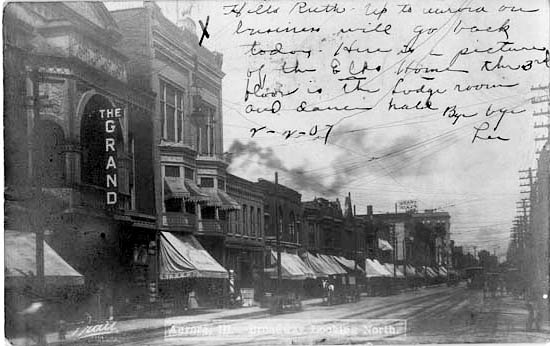 Hello Ruth - Up to aurora on
business will go back
today - Here is a picture
of the Elks Home the 3rd
floor is the Lodge room
and dance hall Bye bye
Leu
THE
GRAND
Aurora, Ill. Broadway Looking North.